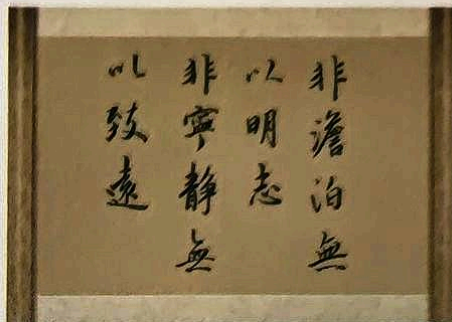 非澹泊無
以明志
非寧靜無
以致遠